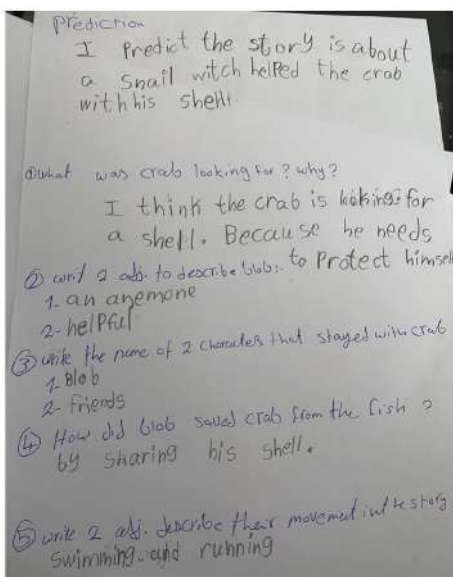 Prediction
I Predict the story is about
a snail witch helped the crab
with his shell.
① what was crab looking for? why?
I think the crab is looking for
a shell. Because he needs
to Protect himself
② writ 2 adj. to describe blob:
1- an anemone
2- helpful
③ write the name of 2 characters that stayed with crab
1 Blob
2- friends
④ How did blob saved crab from the fish?
by sharing his shell.
⑤ write 2 adj. describe their movement in the story
swimming and running